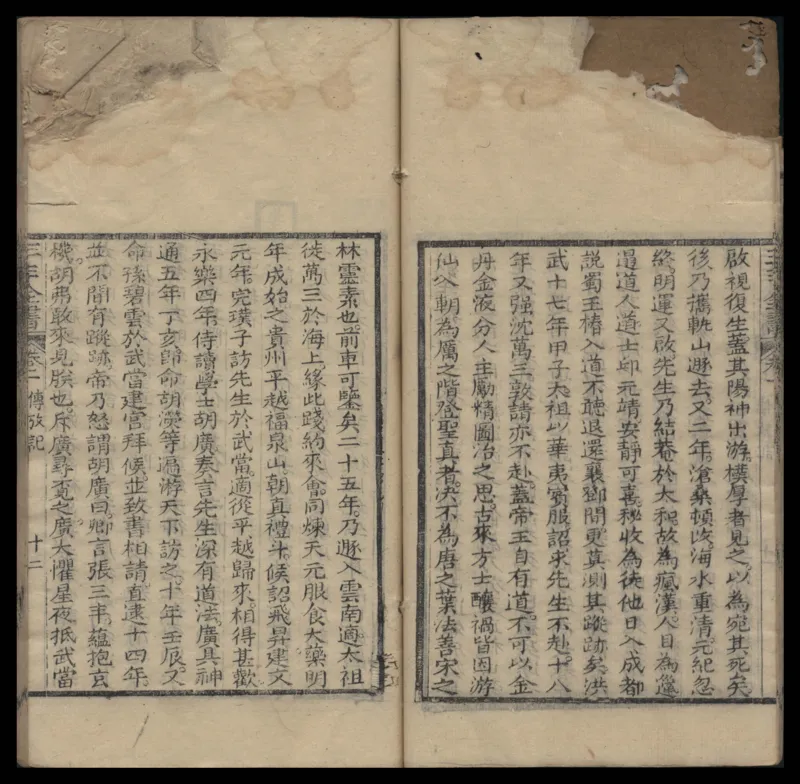 啟視復生蓋其陽神出游樸厚者見之。以為宛其死矣。
後乃攜軌山遯去。又二年。滄桑頓改。海水重清。元紀忽
終。明運又啟。先生乃結菴於太和。故為瘋漢。人目為邋
遢道人。道士邱元靖安靜可喜。秘收為徒。他日入成都
說蜀王椿入道不聽。退還襄鄧間。更莫測其蹤跡矣。洪
武十七年甲子。太祖以華夷賓服。詔求先生不赴。十八
年又强沈萬三敦請亦不赴。蓋帝王自有道。不可以金
丹金液分人主勵精圖治之思。古來方士釀禍皆因游
仙入朝。為厲之階。登聖真者。決不為唐之葉法善宋之
林靈素也。前車可鑒矣。二十五年。乃遯入雲南。適太祖
徙萬三於海上。緣此踐約來會。同煉天元服食大藥。明
年成。始之貴州平越福泉山。朝真禮斗。候詔飛昇。建文
元年。完璞子訪先生於武當。適從平越歸來。相得甚歡
永樂四年。侍讀學士胡廣奏言先生深有道法。廣具神
通。五年丁亥歸命胡濙等遍游天下訪之。十年壬辰。又
命孫碧雲於武當建宮拜候。並致書相請。直逮十四年
並不聞有蹤跡。帝乃怒謂胡廣曰。卿言張三丰。蘊抱玄
機。胡弗敢來見朕也。斥廣尋覓之。廣大懼。星夜抵武當
三丰全書 卷 傳攷記 十二